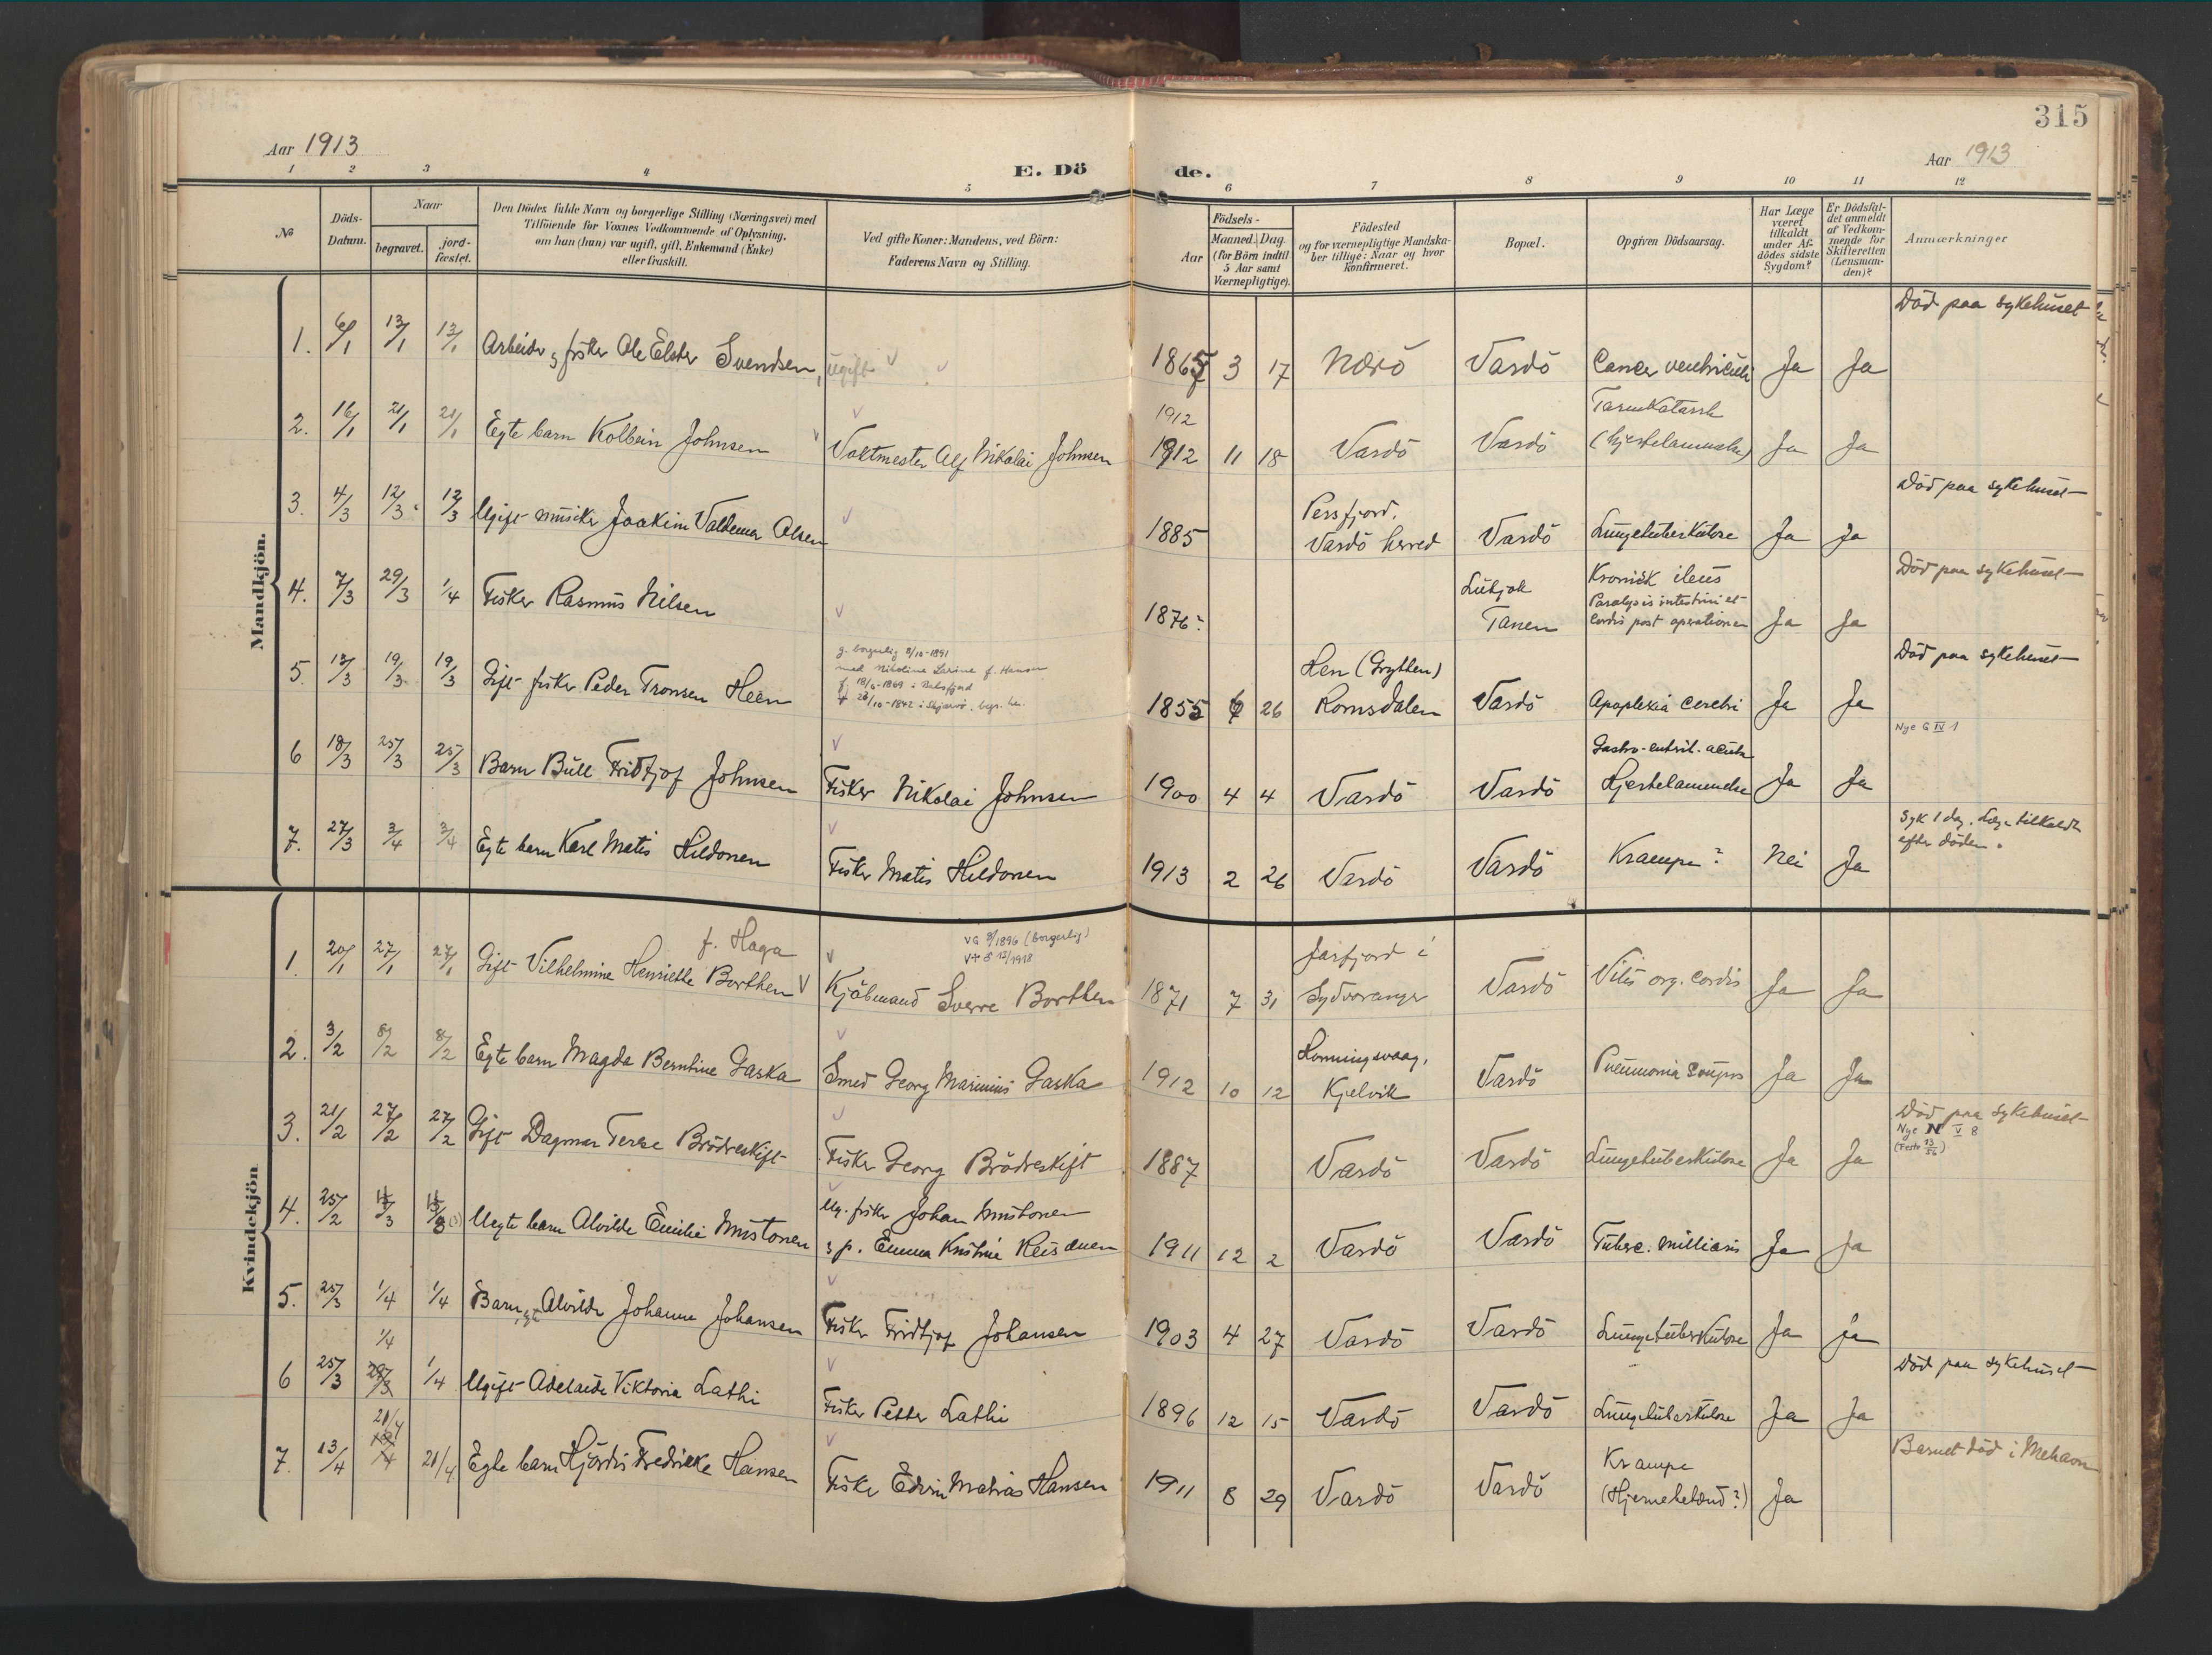 315
Aar 1913
Aar 1913
E. Dö
de.
1 2 3 4 5 6 7 8 9 10 11 12
No
Döds-
Datum.
Naar
begravet.
jord-
fæstet.
Den Dödes fulde Navn og borgerlige Stilling (Næringsvei) med
Tilföiende for Voxnes Vedkommende af Oplysning,
om han (hun) var ugift, gift, Enkemand (Enke)
eller fraskilt.
Ved gifte Koner: Mandens, ved Börn:
Faderens Navn og Stilling.
Födsels-
Aar
Maaned. Dag.
(for Börn indtil
5 Aar samt
Værnepligtige).
Födested
og for værnepligtige Mandska-
ber tillige: Naar og hvor
konfirmeret.
Bopæl.
Opgiven Dödsaarsag.
Har Læge
været
tilkaldt
under Af-
dödes sidste
Sygdom?
Er Dödsfal-
det anmeldt
af Vedkom-
mende for
Skifteretten
(Lensman-
den)?
Anmærkninger
Mandkjön.
Död paa sykehuset
1. 6/1 13/1 13/1 Arbeider og fisker Ole Elster Svendsen, ugift 1865 3 17 Nærö Vardö Cancer ventriculi Ja Ja
1912 Tarmkatarrh
2. 16/1 21/1 21/1 Egte barn Kolbein Johnsen Vaktmester Alf Nikolai Johnsen 1912 11 18 Vardö Vardö (hjertelammelse) Ja Ja
Död paa sykehuset
Persfjord.
3. 4/3 12/3 12/3 Ugift musiker Joakim Valdemar Olsen 1885 Vardö herred Vardö Lungetuberkulose Ja Ja
Död paa sykehuset
Kronisk ileus
Paralysis intestini et
4. 7/3 29/3 1/4 Fisker Rasmus Nilsen 1876? Tanen cordis post operationem Ja Ja
Död paa sykehuset
g. borgerlig 8/10-1891
med Nikoline Larine f. Hansen
Hen (Grytten)
5. 13/3 19/3 19/3 Gift fisker Peder Tronsen Heen 1855 6 26 Romsdalen Vardö Apoplexia cerebri Ja Ja
Nye G IV 1
Gastro-enterit. acuta
6 18/3 25/3 25/3 Barn Bull Fridtjof Johnsen Fisker Nikolai Johnsen 1900 4 4 Vardö Vardö Hjertelammelse Ja Ja
Syk 1 dag. Læge tilkaldt
efter döden.
7. 27/3 3/4 3/4 Egte barn Karl Matis Hildonen Fisker Matis Hildonen 1913 2 26 Vardö Vardö Krampe? Nei Ja
Kvindekjön
f. Haga
(borgerlig)
Jarfjord i
1. 20/1 27/1 27/1 Gift Vilhelmine Henriette Borthen Kjöbmand Sverre Borthen 1871 7 31 Sydvaranger Vardö Vitis org. cordis Ja Ja
Honningsvaag,
2. 3/2 8/2 8/2 Egte barn Magda Berntine Gaska Smed Georg Marinius Gaska 1912 10 12 Kjelvik Vardö Pneumonia Ja Ja
Död paa sykehuset
Nye N V 8
3. 21/2 27/2 27/2 Gift Dagmar Terese Brödreskift Fisker Georg Brödreskift 1887 Vardö Vardö Lungetuberkulose Ja Ja
Ug. fisker Johan Mustonen
4. 25/2 Uegte barn Alvilde Emilie Mustonen 1911 12 2 Vardö Vardö Tuberc. milliaris Ja Ja
5. 25/3 1/4 1/4 Barn, egte Alvilde Johanne Johansen Fisker Fridtjof Johansen 1903 4 27 Vardö Vardö Lungetuberkulose Ja Ja
1/4
Död paa sykehuset
6 25/3 29/3 1/4 Ugift Adelaide Viktoria Lathi Fisker Petter Lathi 1896 12 15 Vardö Vardö Lungetuberkulose Ja Ja
21/4
Barnet död i Mehavn
Krampe
7. 13/4 21/4 Egte barn Hjördis Fredrikke Hansen Fisker Edvin Matias Hansen 1911 8 29 Vardö Vardö (Hjernebetænd?) Ja